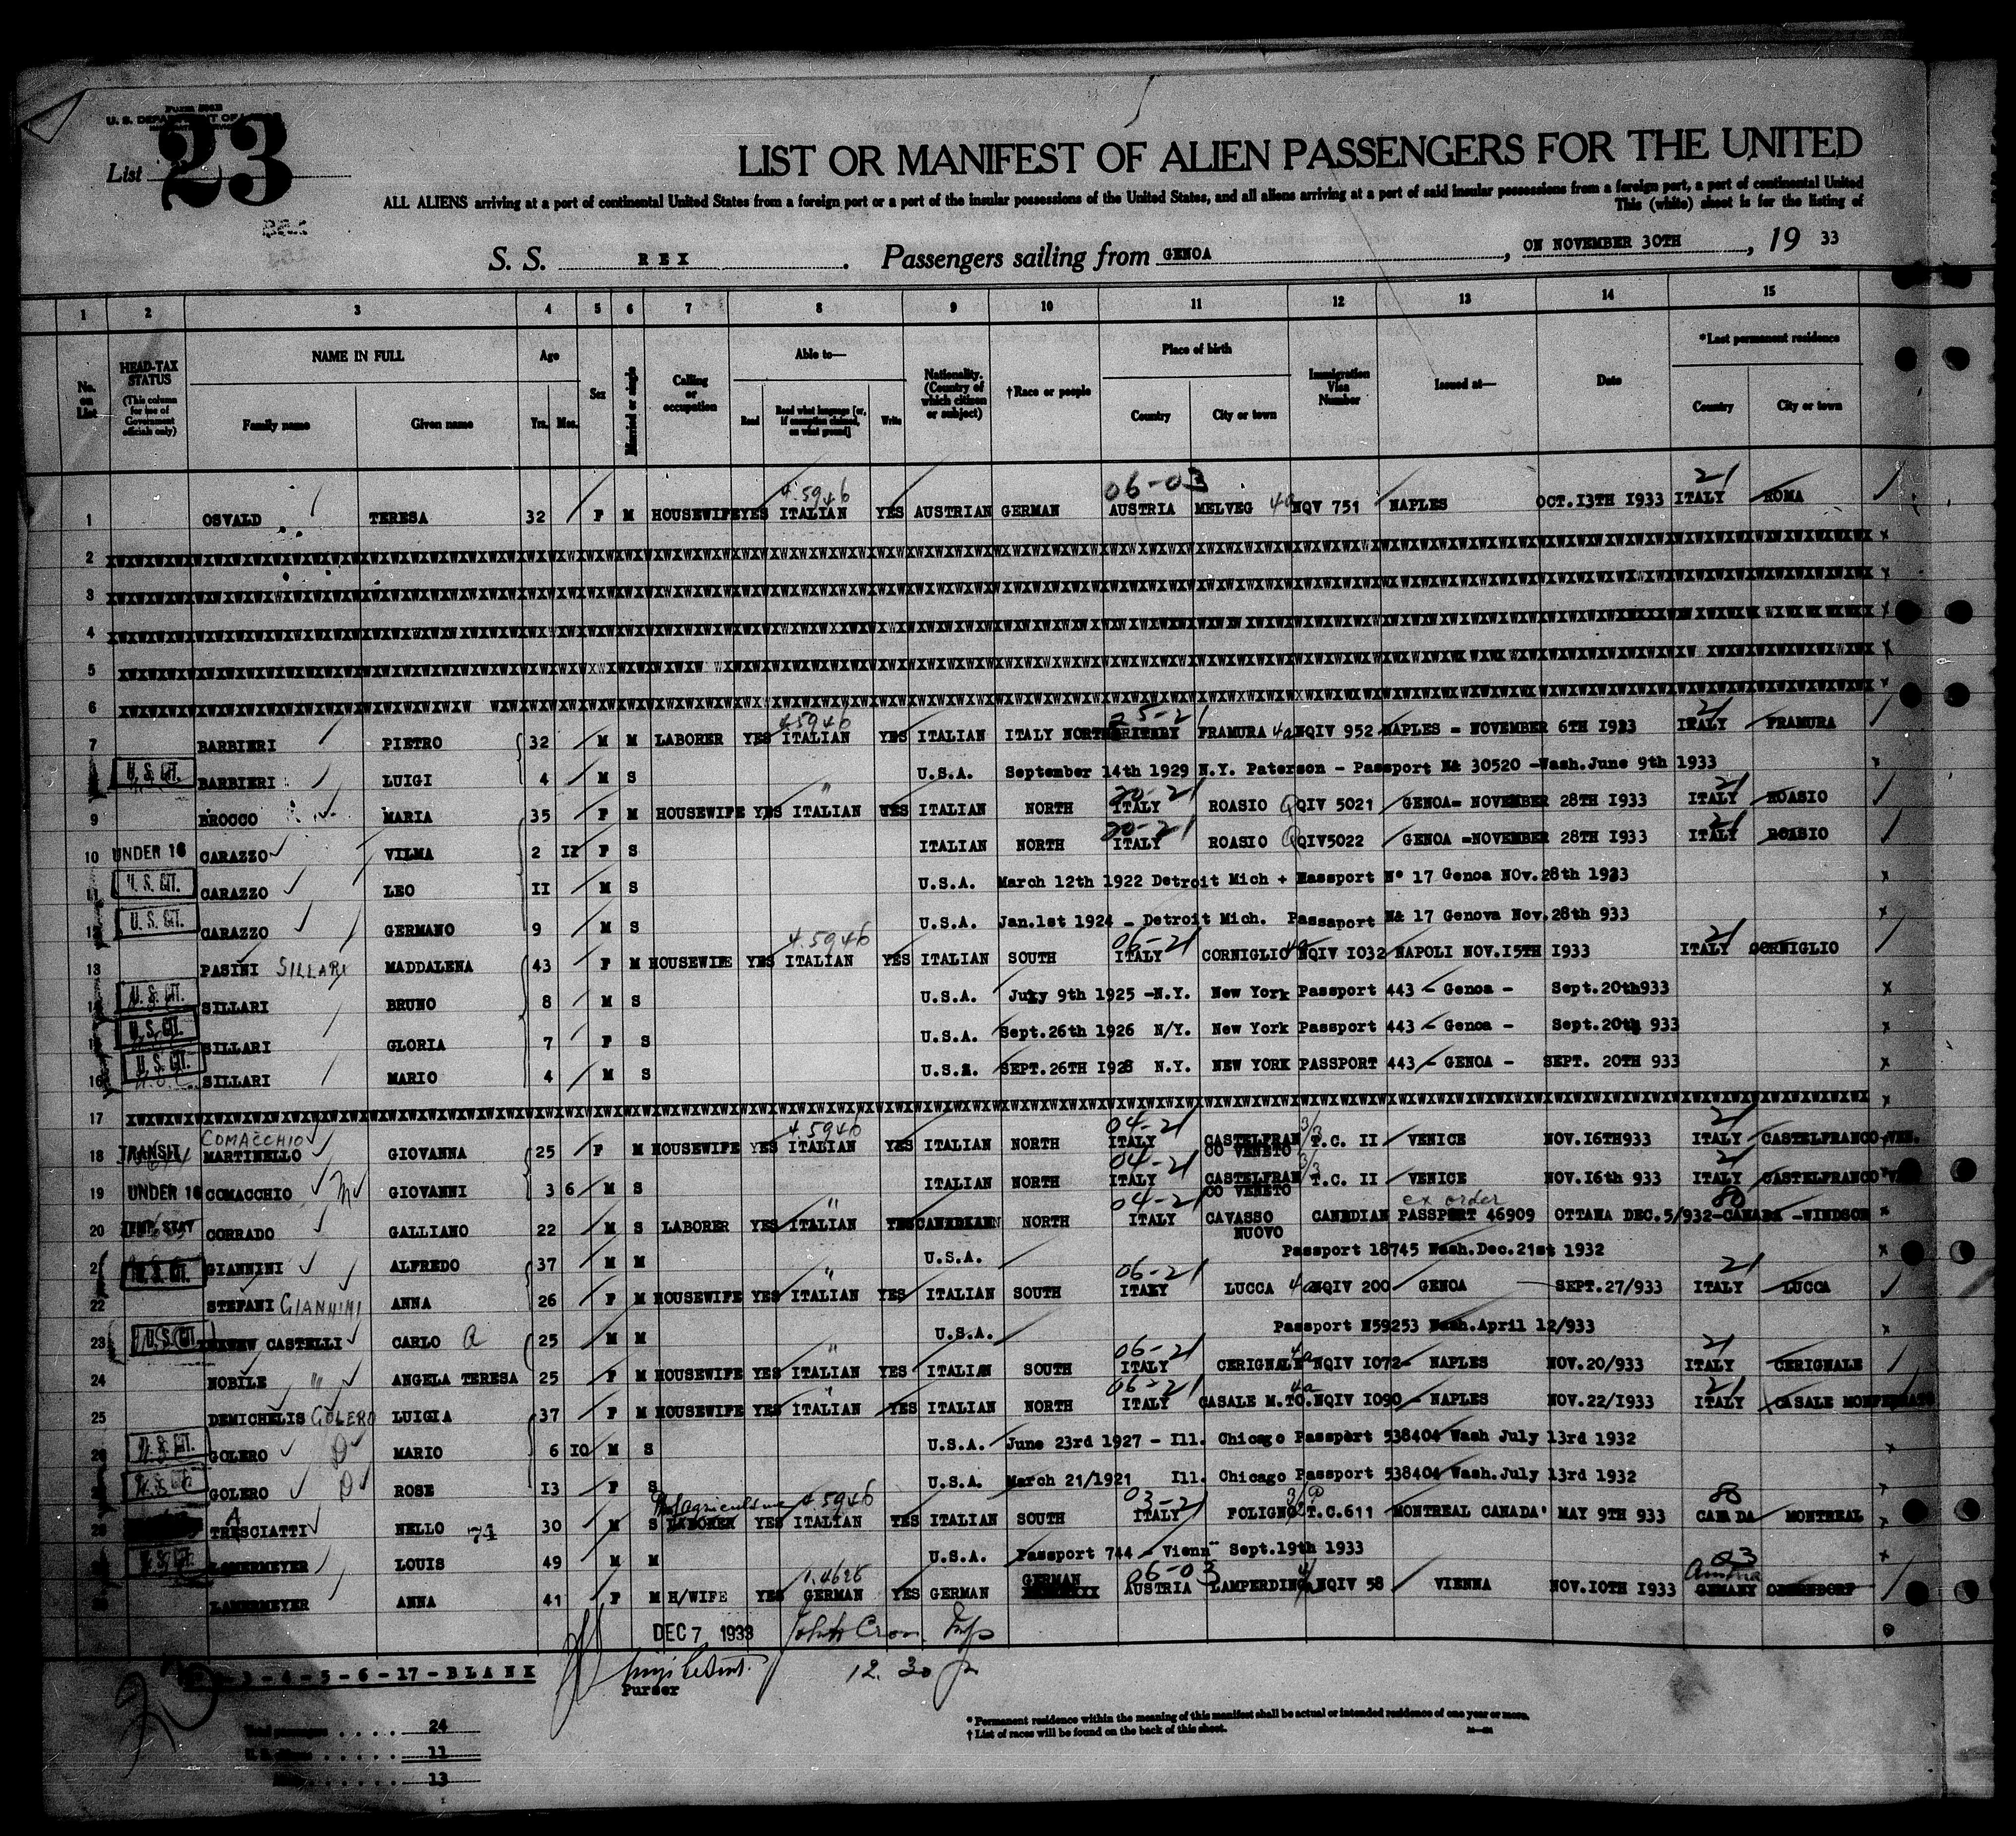 Form 500B
U. S. DEPARTMENT OF LABOR
List 23
LIST OR MANIFEST OF ALIEN PASSENGERS FOR THE UNITED
ALL ALIENS arriving at a port of continental United States from a foreign port or a part of the insular possessions of the United States, and all aliens arriving at a port of said insular possessions from a foreign port, a part of continental United
This (white) sheet is for the listing of
S. S. REX. Passengers sailing from GENOA, ON NOVEMBER 30TH, 19 33
1 2 3 4 5 6 7 8 9 10 11 12 13 14 15
No. on List HEAD-TAX STATUS (This column for use of Government officials only) NAME IN FULL Family name Given name Age Yrs. Mos. Sex Married or single Calling or occupation Able to— Read Read what language [or, if exemption claimed, on what ground] Write Nationality. (Country of which citizen or subject) †Race or people Place of birth Country City or town Immigration Visa Number Issued at— Date *Last permanent residence Country City or town
4.5946 06-03 21
1 OSVALD TERESA 32 F M HOUSEWIFE YES ITALIAN YES AUSTRIAN GERMAN AUSTRIA MELVEG 4a NQV 751 NAPLES OCT.13TH 1933 ITALY ROMA
2
3
4
5
6
45946 5-21 21
7 BARBIERI PIETRO 32 M M LABORER YES ITALIAN YES ITALIAN ITALY NORTH FRAMURA 4a NQIV 952 NAPLES = NOVEMBER 6TH 1933 ITALY FRAMURA
U. S. CIT. BARBIERI LUIGI 4 M S U.S.A. September 14th 1929 N.Y. Paterson - Passport N& 30520 -Wash.June 9th 1933
" 20-21 21
9 BROCCO MARIA 35 F M HOUSEWIFE YES ITALIAN YES ITALIAN NORTH ITALY ROASIO QQIV 5021 GENOA= NOVEMBER 28TH 1933 ITALY ROASIO
20-21 21
10 UNDER 16 CARAZZO VILMA 2 II F S ITALIAN NORTH ITALY ROASIO QQIV5022 GENOA =NOVEMBER 28TH 1933 ITALY ROASIO
11 U. S. CIT. CARAZZO LEO II M S U.S.A. March 12th 1922 Detroit Mich + Passport N° 17 Genoa NOv.28th 1933
12 U. S. CIT. CARAZZO GERMANO 9 M S U.S.A. Jan.1st 1924 - Detroit Mich. Passaport N& 17 Genova Nov.28th 933
4.5946 06-21 21
13 PASINI SILLARI MADDALENA 43 F M HOUSEWIFE YES ITALIAN YES ITALIAN SOUTH ITALY CORNIGLIO 4a NQIV 1032 NAPOLI NOV.15TH 1933 ITALY CORNIGLIO
14 U. S. CIT. SILLARI BRUNO 8 M S U.S.A. July 9th 1925 -N.Y. New York Passport 443 - Genoa - Sept.20th933
U. S. CIT. SILLARI GLORIA 7 F S U.S.A. Sept.26th 1926 N/Y. New York Passport 443 - Genoa - Sept.20th 933
16 U. S. CIT. SILLARI MARIO 4 M S U.S.A. SEPT.26TH 1928 N.Y. NEW YORK PASSPORT 443 - GENOA - SEPT. 20TH 933
17
COMACCHIO 4.5946 04-21 21
18 TRANSIT MARTINELLO GIOVANNA 25 F M HOUSEWIFE YES ITALIAN YES ITALIAN NORTH ITALY CASTELFRANCO VENETO 3/3 T.C. II VENICE NOV.16TH933 ITALY CASTELFRANCO VEN.
04-21 21
19 UNDER 16 COMACCHIO GIOVANNI 3 6 M S ITALIAN NORTH ITALY CASTELFRANCO VENETO 3/3 T.C. II VENICE NOV.16th 933 ITALY CASTELFRANCO
" 04-21 ex order 80
20 TEMP. STAY CORRADO GALLIANO 22 M S LABORER YES ITALIAN YES CANADIAN NORTH ITALY CAVASSO NUOVO CANADIAN PASSPORT 46909 OTTAWA DEC.5/932-CANADA -WINDSOR
21 U. S. CIT. GIANNINI ALFREDO 37 M M U.S.A. Passport 18745 Wash.Dec.21st 1932
" 06-21 21
22 STEFANI GIANNINI ANNA 26 F M HOUSEWIFE YES ITALIAN YES ITALIAN SOUTH ITALY LUCCA 4a NQIV 200 GENOA SEPT.27/933 ITALY LUCCA
23 U. S. CIT. CASTELLI CARLO a 25 M M U.S.A. Passport N59253 Wash.April 12/933
" 06-21 21
24 NOBILE " ANGELA TERESA 25 F M HOUSEWIFE YES ITALIAN YES ITALIAN SOUTH ITALY CERIGNALE 4a NQIV 1072- NAPLES NOV.20/933 ITALY CERIGNALE
" 06-21 21
25 DEMICHELIS GOLERO LUIGIA 37 F M HOUSEWIFE YES ITALIAN YES ITALIAN NORTH ITALY CASALE M.TO. 4a NQIV 1090 - NAPLES NOV.22/1933 ITALY CASALE MONFERRATO
26 U. S. CIT. GOLERO MARIO 6 IO M S U.S.A. June 23rd 1927 - Ill. Chicago Passport 538404 Wash July 13rd 1932
GOLERO ROSE 13 F S U.S.A. March 21/1921 Ill. Chicago Passport 538404 Wash.July 13rd 1932
A agriculture 4.5946 03-21 80
TRESCIATTI NELLO 74 30 M S LABORER YES ITALIAN YES ITALIAN SOUTH ITALY FOLIGNO T.C.611 MONTREAL CANADA MAY 9TH 933 CANADA MONTREAL
U. S. CIT. LANERMEYER LOUIS 49 M M U.S.A. Passport 744 - Vienn Sept.19th 1933
1.4626 GERMAN 06-03 03 Austria
LANERMEYER ANNA 41 F M H/WIFE YES GERMAN YES GERMAN AUSTRIA LAMPERDING NQIV 58 VIENNA NOV.10TH 1933 GEMANY OBERNDORF
DEC 7 1933 John Cron Insp
- 3 - 4 - 5 - 6 - 17 - BLANK
12.30 p
Purser
Total passengers 24
11
13
* Permanent residence within the meaning of this manifest shall be actual or intended residence of one year or more.
† List of races will be found on the back of this sheet.